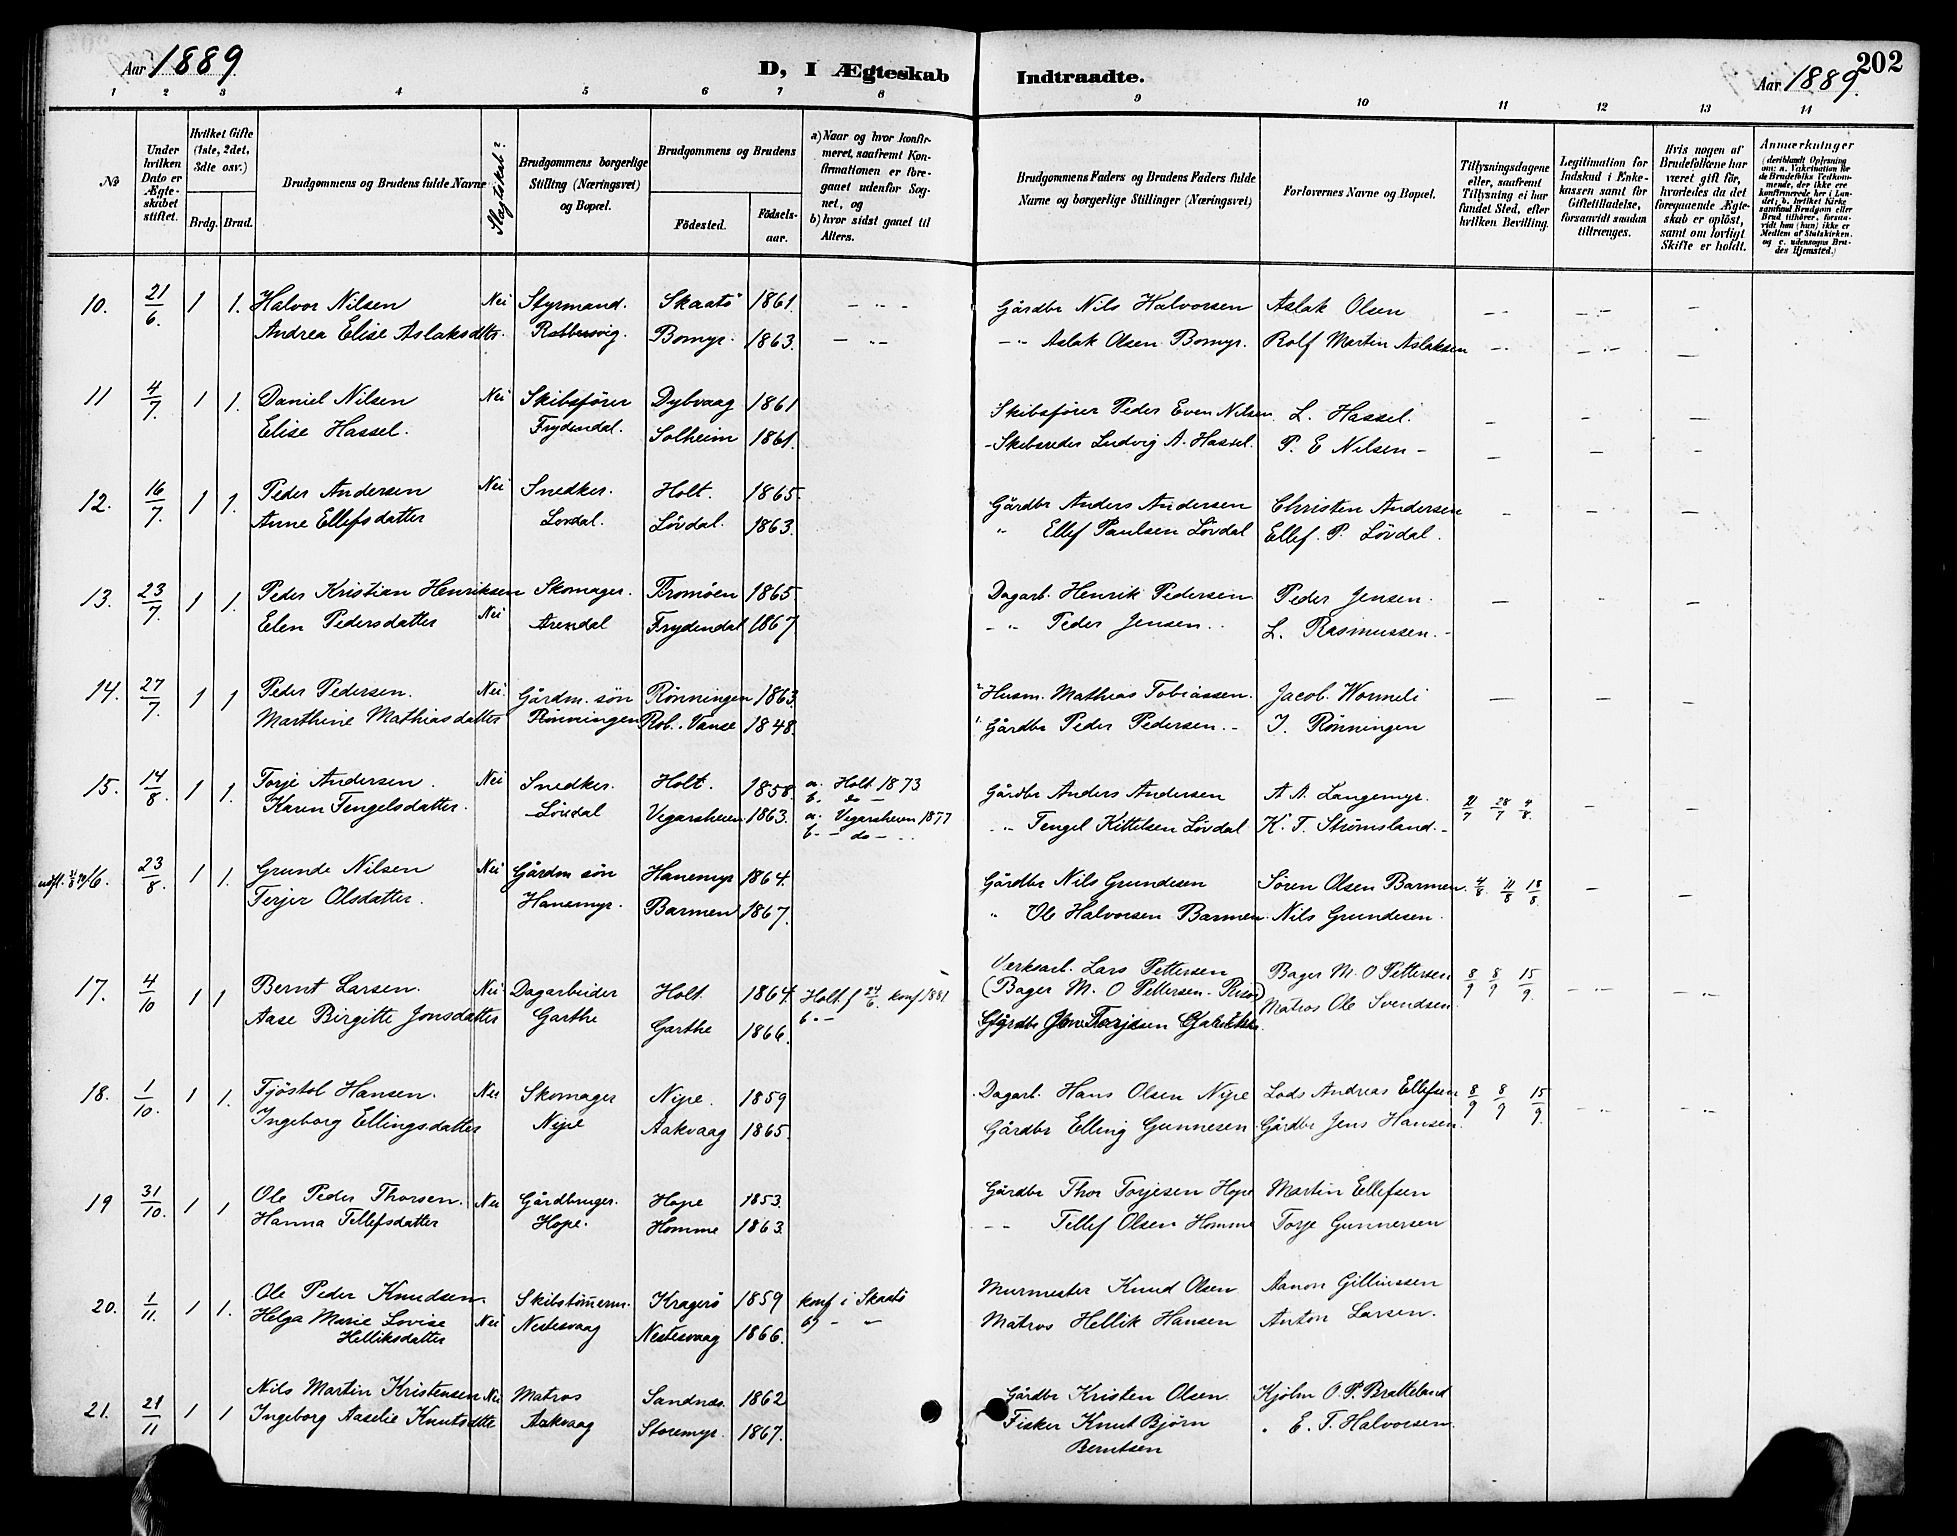 Aar 1889
D, I Ægteskab Indtraadte.
Aar 1889.
202
1 2 3 4 5 6 7 8 9 10 11 12 13 14
No
Under hvilken Dato er Ægteskabet stiftet.
Hvilket Gifte (1ste, 2det, 3die osv.)
Brdg. Brud.
Brudgommens og Brudens fulde Navne
Slægtskab?
Brudgommens borgerlige Stilling (Næringsvei) og Bopæl.
Brudgommens og Brudens
Fødested.
Fødselsaar.
a) Naar og hvor konfirmeret, saafremt Konfirmationen er foregaaet udenfor Sognet, og
b) hvor sidst gaaet til Alters.
Brudgommens Faders og Brudens Faders fulde Navne og borgerlige Stillinger (Næringsvei)
Forlovernes Navne og Bopæl.
Tillysningsdagene eller, saafremt Tillysning ei har fundet Sted, efter hvilken Bevilling.
Legitimation for Indskud i Enkekassen samt for Giftetilladelse, forsaavidt saadan tiltrænges.
Hvis nogen af Brudefolkene har været gift før, hvorledes da det foregaaende Ægteskab er opløst, samt om lovligt Skifte er holdt.
Anmærkninger
(deriblandt Oplysning om: a. Vakcination for de Brudefolks Vedkommende, der ikke ere konfirmerede her i Landet; b. hvilket Kirkesamfund Brudgom eller Brud tilhører, forsaavidt han (hun) ikke er Medlem af Statskirken, og c. udensogns Brudes Hjemsted.)
10. 21/6. 1 1. Halvor Nilsen Nei Styrmand. Skaatö 1861. - " - Gårdbr Nils Halvorsen Aslak Olsen
Andrea Elise Aslaksdtter. Bomyr. 1863. - " - - " Aslak Olsen Bomyr. Rolf Martin Aslaksen
11 4/7. 1 1. Daniel Nilsen Nei Skibsfører Dybvaag 1861 Skibsfører Peder Even Nilsen L. Hassel.
Elise Hassel. Frydendal. Solheim 1861. - Skibsreder Ludvig A. Hassel. P. E Nilsen -
12. 16/7. 1 1. Peder Andersen Nei Snedker. Holt. 1865. Gårdbr Anders Andersen Christen Andersen
Anne Ellefsdatter Lövdal. Lövdal. 1863. " Ellef Paulsen Lövdal Ellef. P. Lövdal.
13. 23/7. 1 1. Peder Kristian Henriksen Skomager. Tromøen 1865 Dagarb. Henrik Pedersen Peder Jensen.
Elen Pedersdatter Nei Arendal Frydendal 1867. - " Peder Jensen.. L. Rasmussen. -
14. 27/7. 1 1 Peder Pedersen. Nei. Gårdm. søn Rönningen 1863. Husm. Mathias Tobiassen. Jacob. Wormeli
Marthine Mathiasdatter Rönningen Rob. Vanse 1848. Gårdbr Peder Pedersen. - J. Rönningen
15. 14/8. 1 1. Torje Andersen. Nei Snedker. Holt. 1858. a. Holt 1873 Gårdbr Anders Andersen A A. Langemyr. 21/7 28/7 4/8.
b. do -
Karen Tengelsdatter. Lövdal Vegarsheien 1863. a. Vegarsheien 1877 " Tengel Kittelsen Lövdal K. T. Strömsland. -
b - do -
16. 23/8. 1 1. Grunde Nilsen Nei Gårdm søn Hanemyr 1864. Gårdbr Nils Grundesen Søren Olsen Barmen. 4/8. 11/8 18/8.
Terjer Olsdatter. Hanemyr. Barmen 1867. " Ole Halvorsen Barmen. Nils Grundesen.
17. 4/10 1 1 Bernt Larsen. Nei Dagarbeider Holt. 1864. Holt f 24/6. konf 1881 Verksarb. Lars Pettersen Bager M. O Pettersen 8/9 8/9 15/9.
(Bager M. O Pettersen - Risør)
Aase Birgitte Jonsdatter Garthe Garthe 1866. b - Gårdbr Matros Ole Svendsen.
18. 1/10. 1 1. Tjöstol Hansen. Nei Skomager Nipe. 1859 Dagarb. Hans Olsen Nipe Lods Andreas Ellefsen 8/9 8/9 15/9.
Ingeborg Ellingsdatter Nipe Aakvaag 1865. Gårdbr Elling Gunnesen Gårdbr Jens Hansen.
19 31/10. 1 1. Ole Peder Thorsen. Nei Gårdbruger. Hope 1853. Gårdbr Thor Torjesen Hope Martin Ellefsen
Hanna Tellefsdatter Hope. Homme 1863. - - Tellef Olsen Homme Torje Gunnersen
20. 1/11. 1 1. Ole Peder Knudsen. Skibstömerm. Kragerö 1859 konf i Skaatö Murmester Knud Olsen Aanon
Helga Marie Lovise Nei Nestesvaag Nestesvaag 1866. b) - " Matros Hellik Hansen Anton Larsen.
Helliksdatter
21. 21/11 1 1 Nils Martin Kristensen Nei Matros Sandnæs. 1862 Gårdbr Kristen Olsen Kjölm O. P. Brakkeland
Ingeborg Aaselie Knutsdtte Aakvaag Storemyr. 1867. Fisker Knut Bjørn " E. T. Halvorsen.
Berntsen